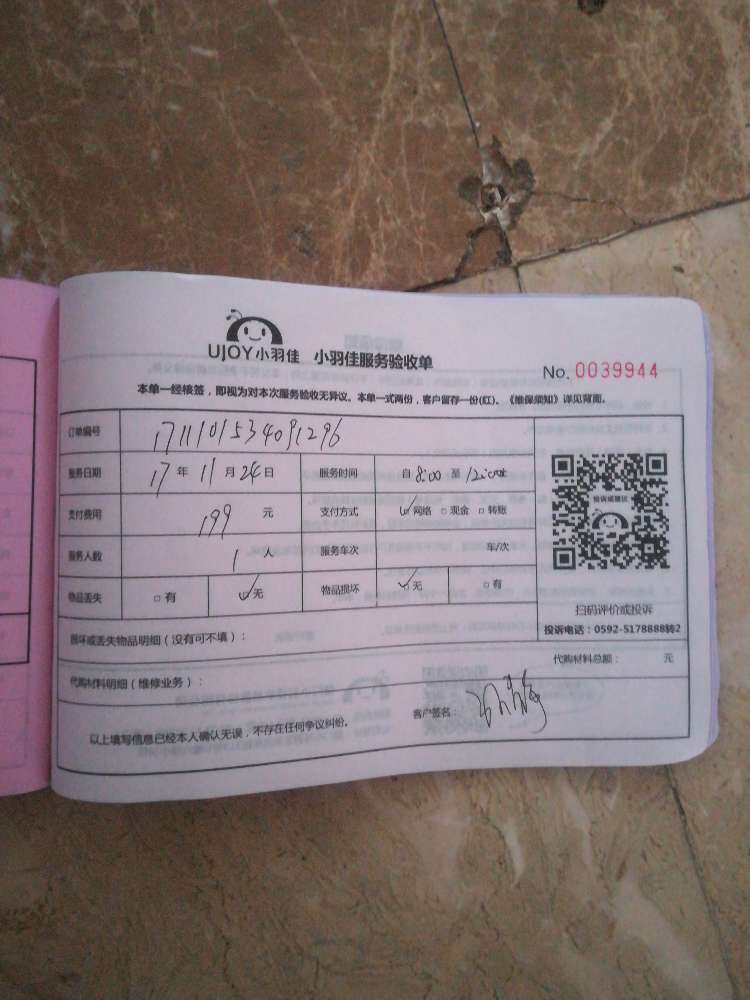 UJOY小羽佳 小羽佳服务验收单
No. 0039944
本单一经核签，即视为对本次服务验收无异议。本单一式两份，客户留存一份(红)。《维保须知》详见背面。
订单编号 1711101534091296
服务日期 17 年 11 月 24 日 服务时间 自 8:00 至 12:00止
支付费用 199 元 支付方式 ☑网络 □现金 □转账
服务人数 1 人 服务车次 车/次
物品丢失 □有 ☑无 物品损坏 ☑无 □有
投诉或建议
扫码评价或投诉
投诉电话：0592-5178888转2
损坏或丢失物品明细（没有可不填）：
代购材料明细（维修业务）： 代购材料总额： 元
以上填写信息已经本人确认无误，不存在任何争议纠纷。 客户签名：